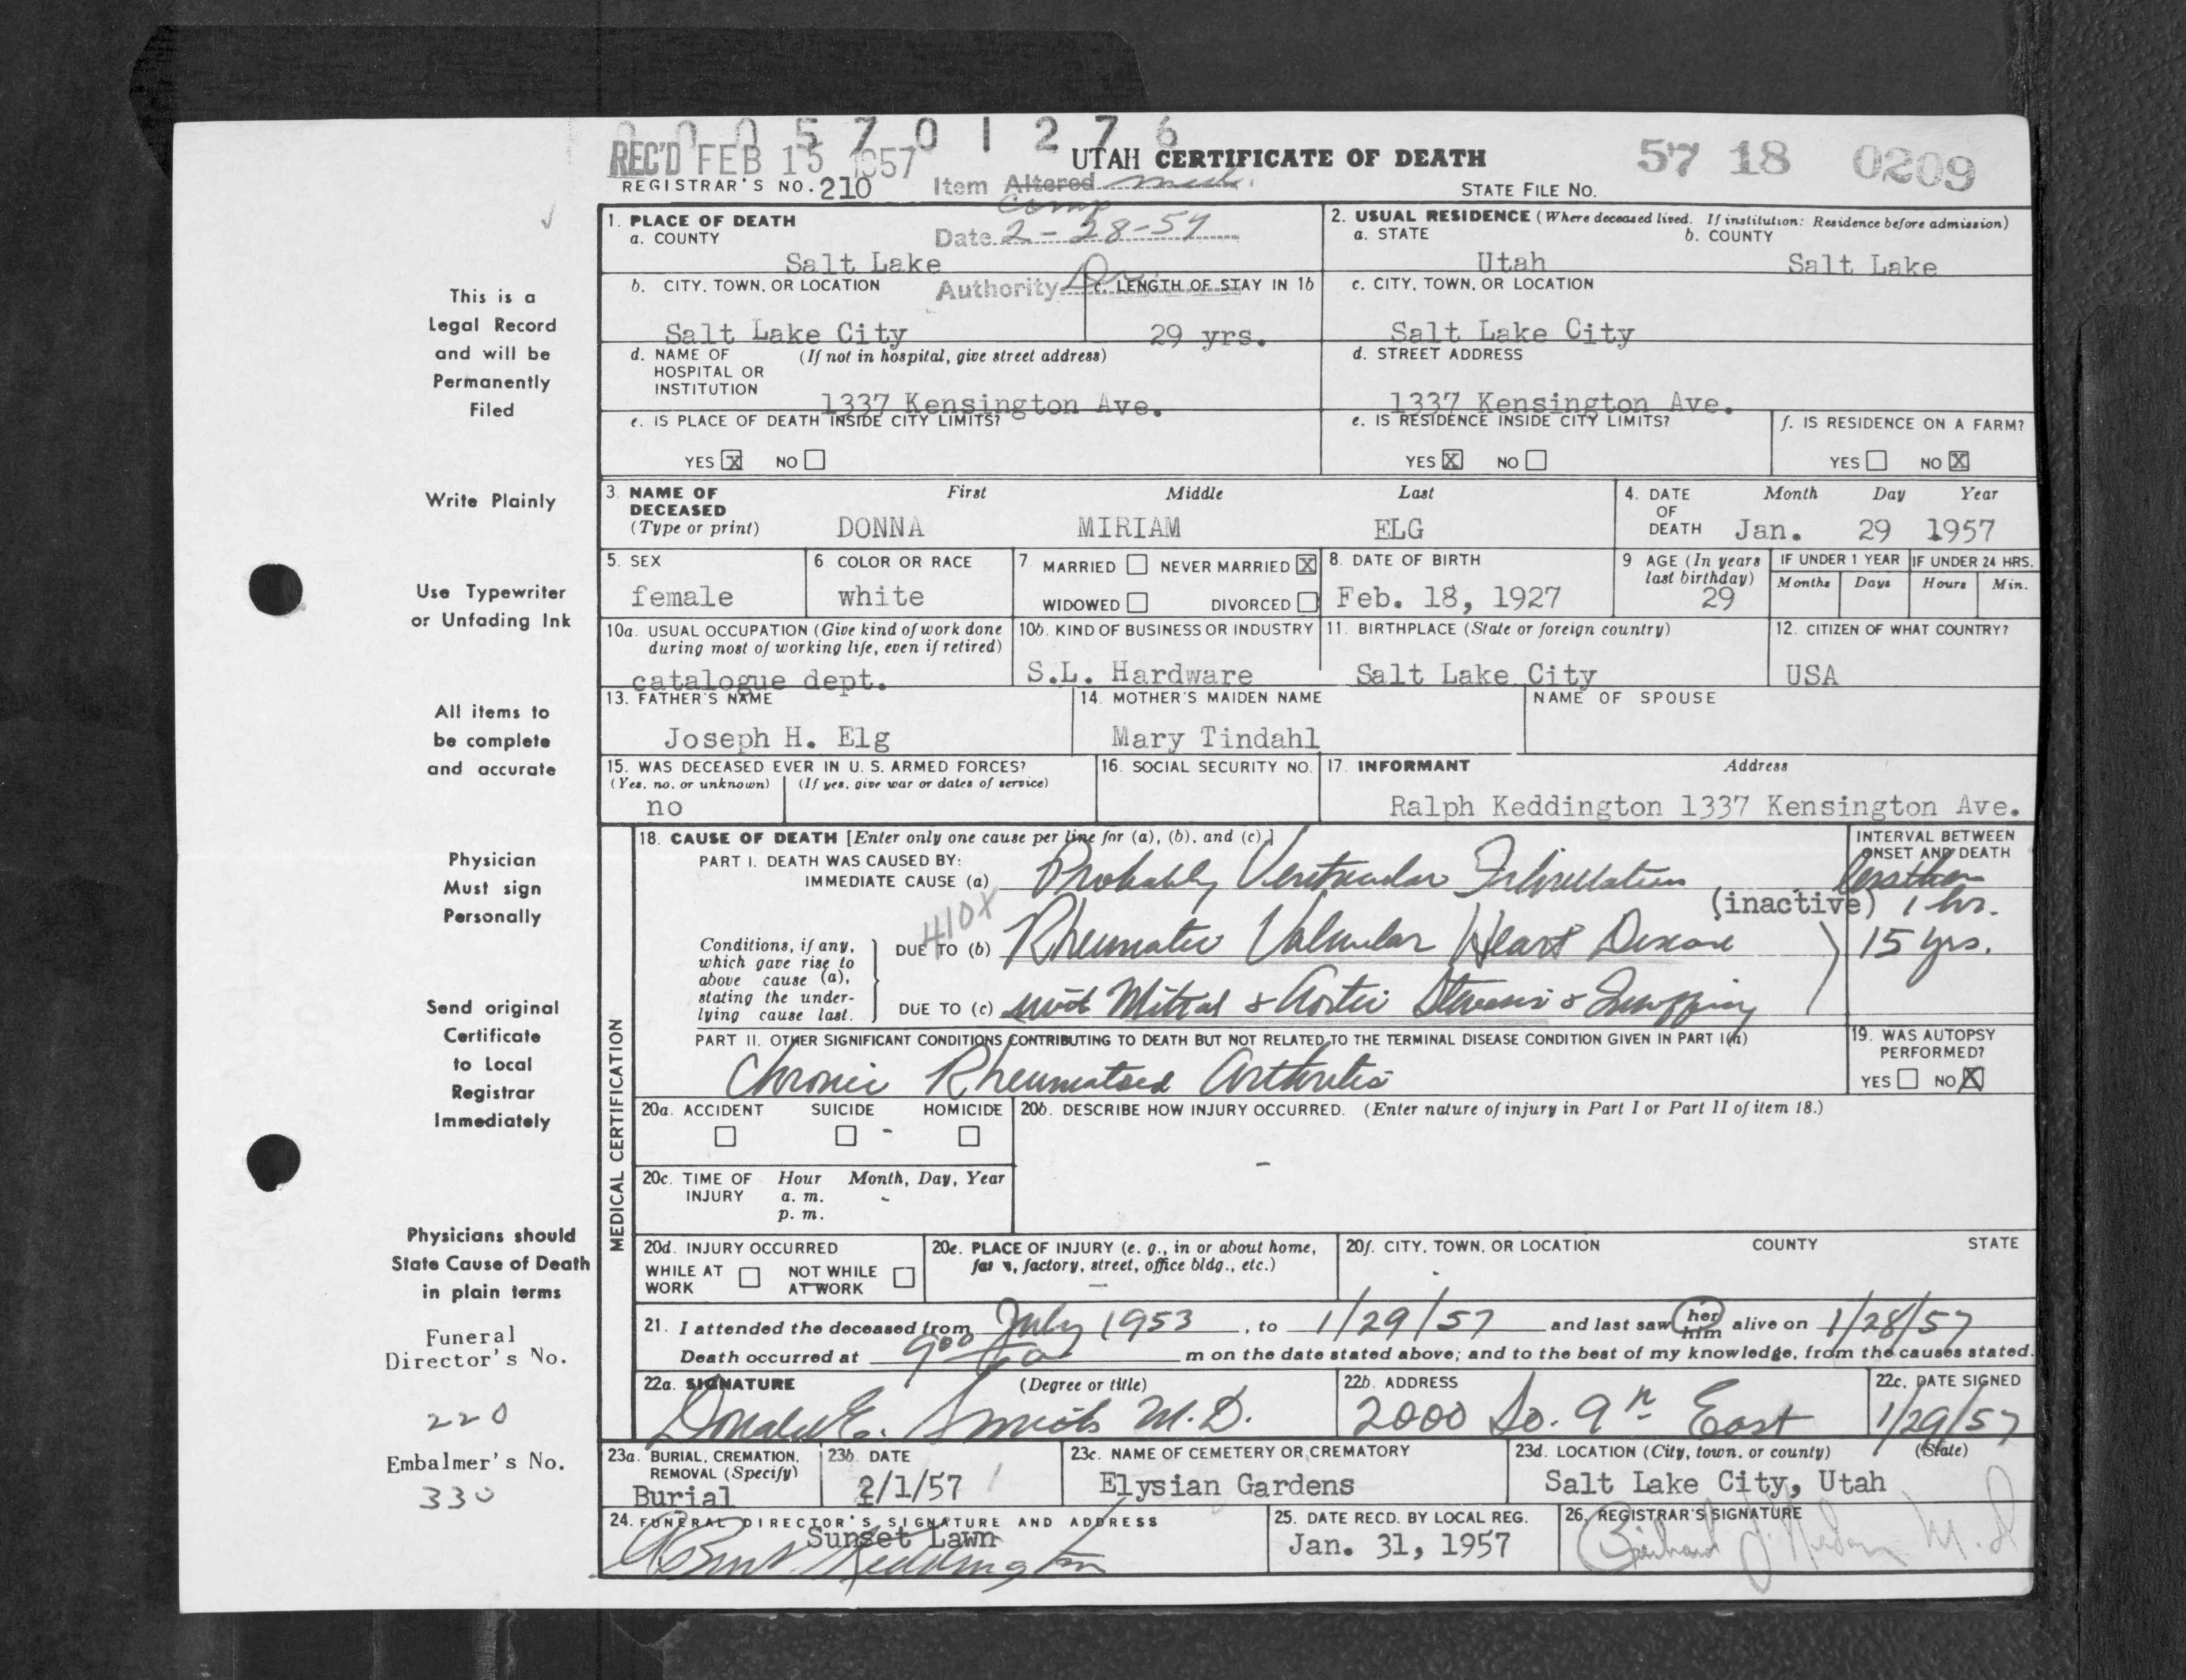 0 0 0 5 7 0 1 2 7 6
REC'D FEB 15 1957
UTAH CERTIFICATE OF DEATH
57 18 0209
REGISTRAR'S NO. 210
Item Altered
Comp
STATE FILE NO.
Date 2-28-57
Authority Dr.
1. PLACE OF DEATH
a. COUNTY
Salt Lake
2. USUAL RESIDENCE (Where deceased lived. If institution: Residence before admission)
a. STATE
Utah
b. COUNTY
Salt Lake
b. CITY, TOWN, OR LOCATION
Salt Lake City
c. LENGTH OF STAY IN 1b
29 yrs.
c. CITY, TOWN, OR LOCATION
Salt Lake City
d. NAME OF HOSPITAL OR INSTITUTION (If not in hospital, give street address)
1337 Kensington Ave.
d. STREET ADDRESS
1337 Kensington Ave.
e. IS PLACE OF DEATH INSIDE CITY LIMITS?
YES X NO
e. IS RESIDENCE INSIDE CITY LIMITS?
YES X NO
f. IS RESIDENCE ON A FARM?
YES NO X
3. NAME OF DECEASED (Type or print)
First Middle Last
DONNA MIRIAM ELG
4. DATE OF DEATH
Month Day Year
Jan. 29 1957
5. SEX
female
6. COLOR OR RACE
white
7. MARRIED NEVER MARRIED X
WIDOWED DIVORCED
8. DATE OF BIRTH
Feb. 18, 1927
9 AGE (In years last birthday)
29
IF UNDER 1 YEAR
Months Days
IF UNDER 24 HRS.
Hours Min.
10a. USUAL OCCUPATION (Give kind of work done during most of working life, even if retired)
catalogue dept.
10b. KIND OF BUSINESS OR INDUSTRY
S.L. Hardware
11. BIRTHPLACE (State or foreign country)
Salt Lake City
12. CITIZEN OF WHAT COUNTRY?
USA
13. FATHER'S NAME
Joseph H. Elg
14. MOTHER'S MAIDEN NAME
Mary Tindahl
NAME OF SPOUSE
15. WAS DECEASED EVER IN U. S. ARMED FORCES?
(Yes, no, or unknown) (If yes, give war or dates of service)
no
16. SOCIAL SECURITY NO.
17. INFORMANT Address
Ralph Keddington 1337 Kensington Ave.
MEDICAL CERTIFICATION
18. CAUSE OF DEATH [Enter only one cause per line for (a), (b), and (c).]
PART I. DEATH WAS CAUSED BY:
IMMEDIATE CAUSE (a) Probably Ventricular Fibrillation
INTERVAL BETWEEN ONSET AND DEATH
less than 1 hr.
(inactive)
410X
Conditions, if any, which gave rise to above cause (a), stating the underlying cause last.
DUE TO (b) Rheumatic Valvular Heart Disease
15 yrs.
DUE TO (c) with Mitral & Aortic Stenosis &
PART II. OTHER SIGNIFICANT CONDITIONS CONTRIBUTING TO DEATH BUT NOT RELATED TO THE TERMINAL DISEASE CONDITION GIVEN IN PART I(a)
Chronic Rheumatoid Arthritis
19. WAS AUTOPSY PERFORMED?
YES NO X
20a. ACCIDENT SUICIDE HOMICIDE
20b. DESCRIBE HOW INJURY OCCURRED. (Enter nature of injury in Part I or Part II of item 18.)
20c. TIME OF INJURY
Hour Month, Day, Year
a. m.
p. m.
20d. INJURY OCCURRED
WHILE AT WORK NOT WHILE AT WORK
20e. PLACE OF INJURY (e. g., in or about home, farm, factory, street, office bldg., etc.)
20f. CITY, TOWN, OR LOCATION COUNTY STATE
21. I attended the deceased from July 1953, to 1/29/57 and last saw her him alive on 1/28/57
Death occurred at 9:00 a m on the date stated above; and to the best of my knowledge, from the causes stated.
22a. SIGNATURE (Degree or title)
Donald E. Smith M.D.
22b. ADDRESS
2000 So. 9th East
22c. DATE SIGNED
1/29/57
23a. BURIAL, CREMATION, REMOVAL (Specify)
Burial
23b. DATE
2/1/57
23c. NAME OF CEMETERY OR CREMATORY
Elysian Gardens
23d. LOCATION (City, town, or county) (State)
Salt Lake City, Utah
24. FUNERAL DIRECTOR'S SIGNATURE AND ADDRESS
Sunset Lawn
Keddington
25. DATE RECD. BY LOCAL REG.
Jan. 31, 1957
26. REGISTRAR'S SIGNATURE
M.D.
This is a
Legal Record
and will be
Permanently
Filed
Write Plainly
Use Typewriter
or Unfading Ink
All items to
be complete
and accurate
Physician
Must sign
Personally
Send original
Certificate
to Local
Registrar
Immediately
Physicians should
State Cause of Death
in plain terms
Funeral
Director's No.
220
Embalmer's No.
330